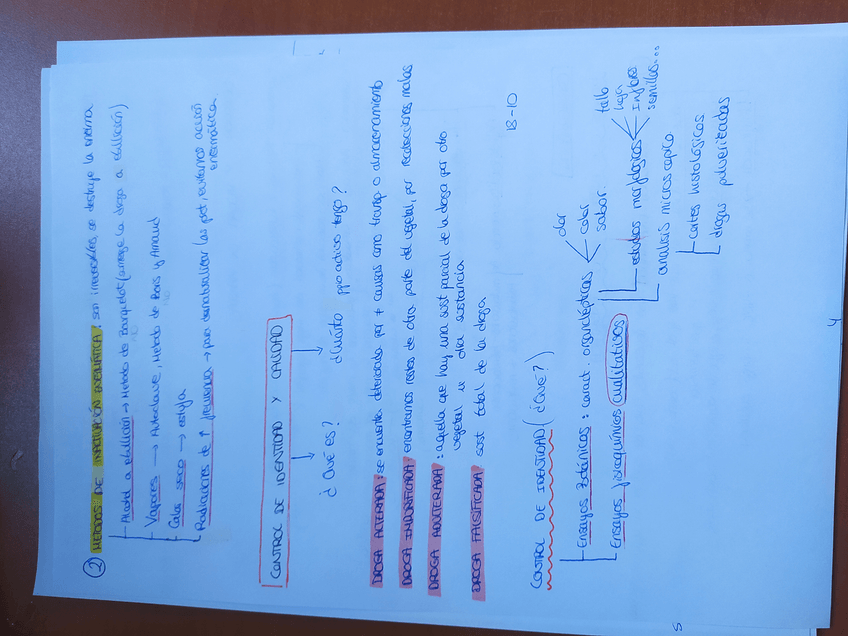 ② MÉTODOS DE INACTIVACIÓN ENZIMÁTICA: son irreversibles, se destruye la enzima
Alcohol a ebullición → Método de Bourquelot (arrojar la droga a ebullición)
Vapores → Autoclave, Método de Boris y Arnaud
Calor seco → estufa
Radiaciones de ↑ frecuencia → para desnaturalizar las prot, evitamos acción
enzimática
CONTROL DE IDENTIDAD Y CALIDAD
¿Qué es? ¿Cuánto ppo activo tengo?
DROGA ALTERADA: se encuentra deteriorada por ≠ causas como transp o almacenamiento
DROGA : encontramos restos de otra parte del vegetal, por recolecciones malas
DROGA ADULTERADA: aquella que hay una sust parcial de la droga por otro
vegetal u otra sustancia
DROGA FALSIFICADA sust total de la droga
18-10
CONTROL DE IDENTIDAD (¿QUÉ?)
Ensayos Botánicos: caract. organolépticos
olor
color
sabor
estudios morfológicos
tallo
hoja
inflores
semillas...
análisis microscópico
cortes histológicos
drogas pulverizadas
Ensayos fisicoquímicos cualitativos
4
5